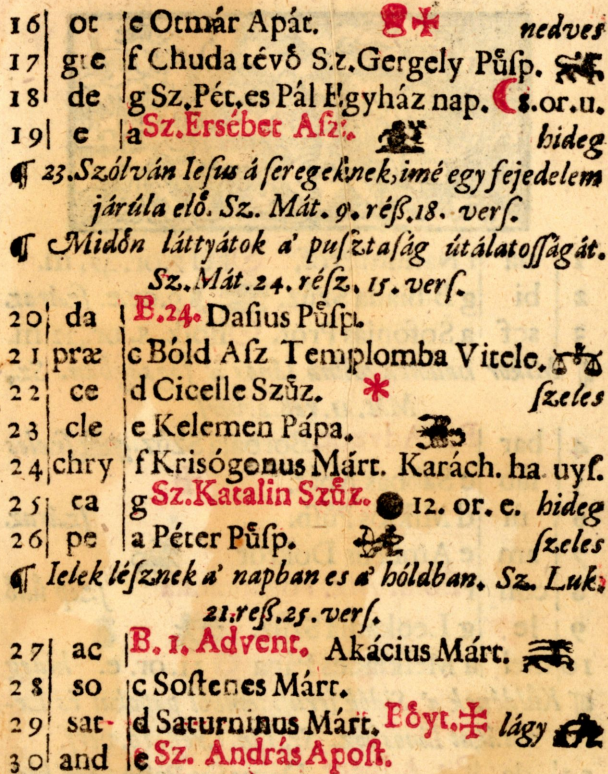 16 ot e Otmár Apát. nedves
17 gre f Chuda tévő Sz.Gergely Püſp.
18 de g Sz.Pét.es Pál Egyház nap. 8.or.u.
19 e a Sz.Ersébet Aſz. hideg
¶ 23.Szólván Ieſus á ſeregeknek,imé egy fejedelem
járúla elő. Sz. Mát. 9. réß.18. verſ.
¶ Midőn láttyátok a' puſztaſág útálatoſſágát.
Sz.Mát.24. réſz. 15. verſ.
20 da B.24. Daſius Püſp.
21 præ c Bóld Aſz Templomba Vitele.
22 ce d Cicelle Szűz. ſzeles
23 cle e Kelemen Pápa.
24 chry f Krisógonus Márt. Karách. ha uyſ.
25 ca g Sz.Katalin Szűz. 12. or. e. hideg
26 pe a Péter Püſp. ſzeles
¶ Ielek léſznek a' napban es a' hóldban. Sz. Luk.
21.reß.25.verſ.
27 ac B. 1. Advent. Akácius Márt.
28 so c Soſtenes Márt.
29 sat d Saturninus Márt. Bőyt. lágy
30 and e Sz. András Apoſt.